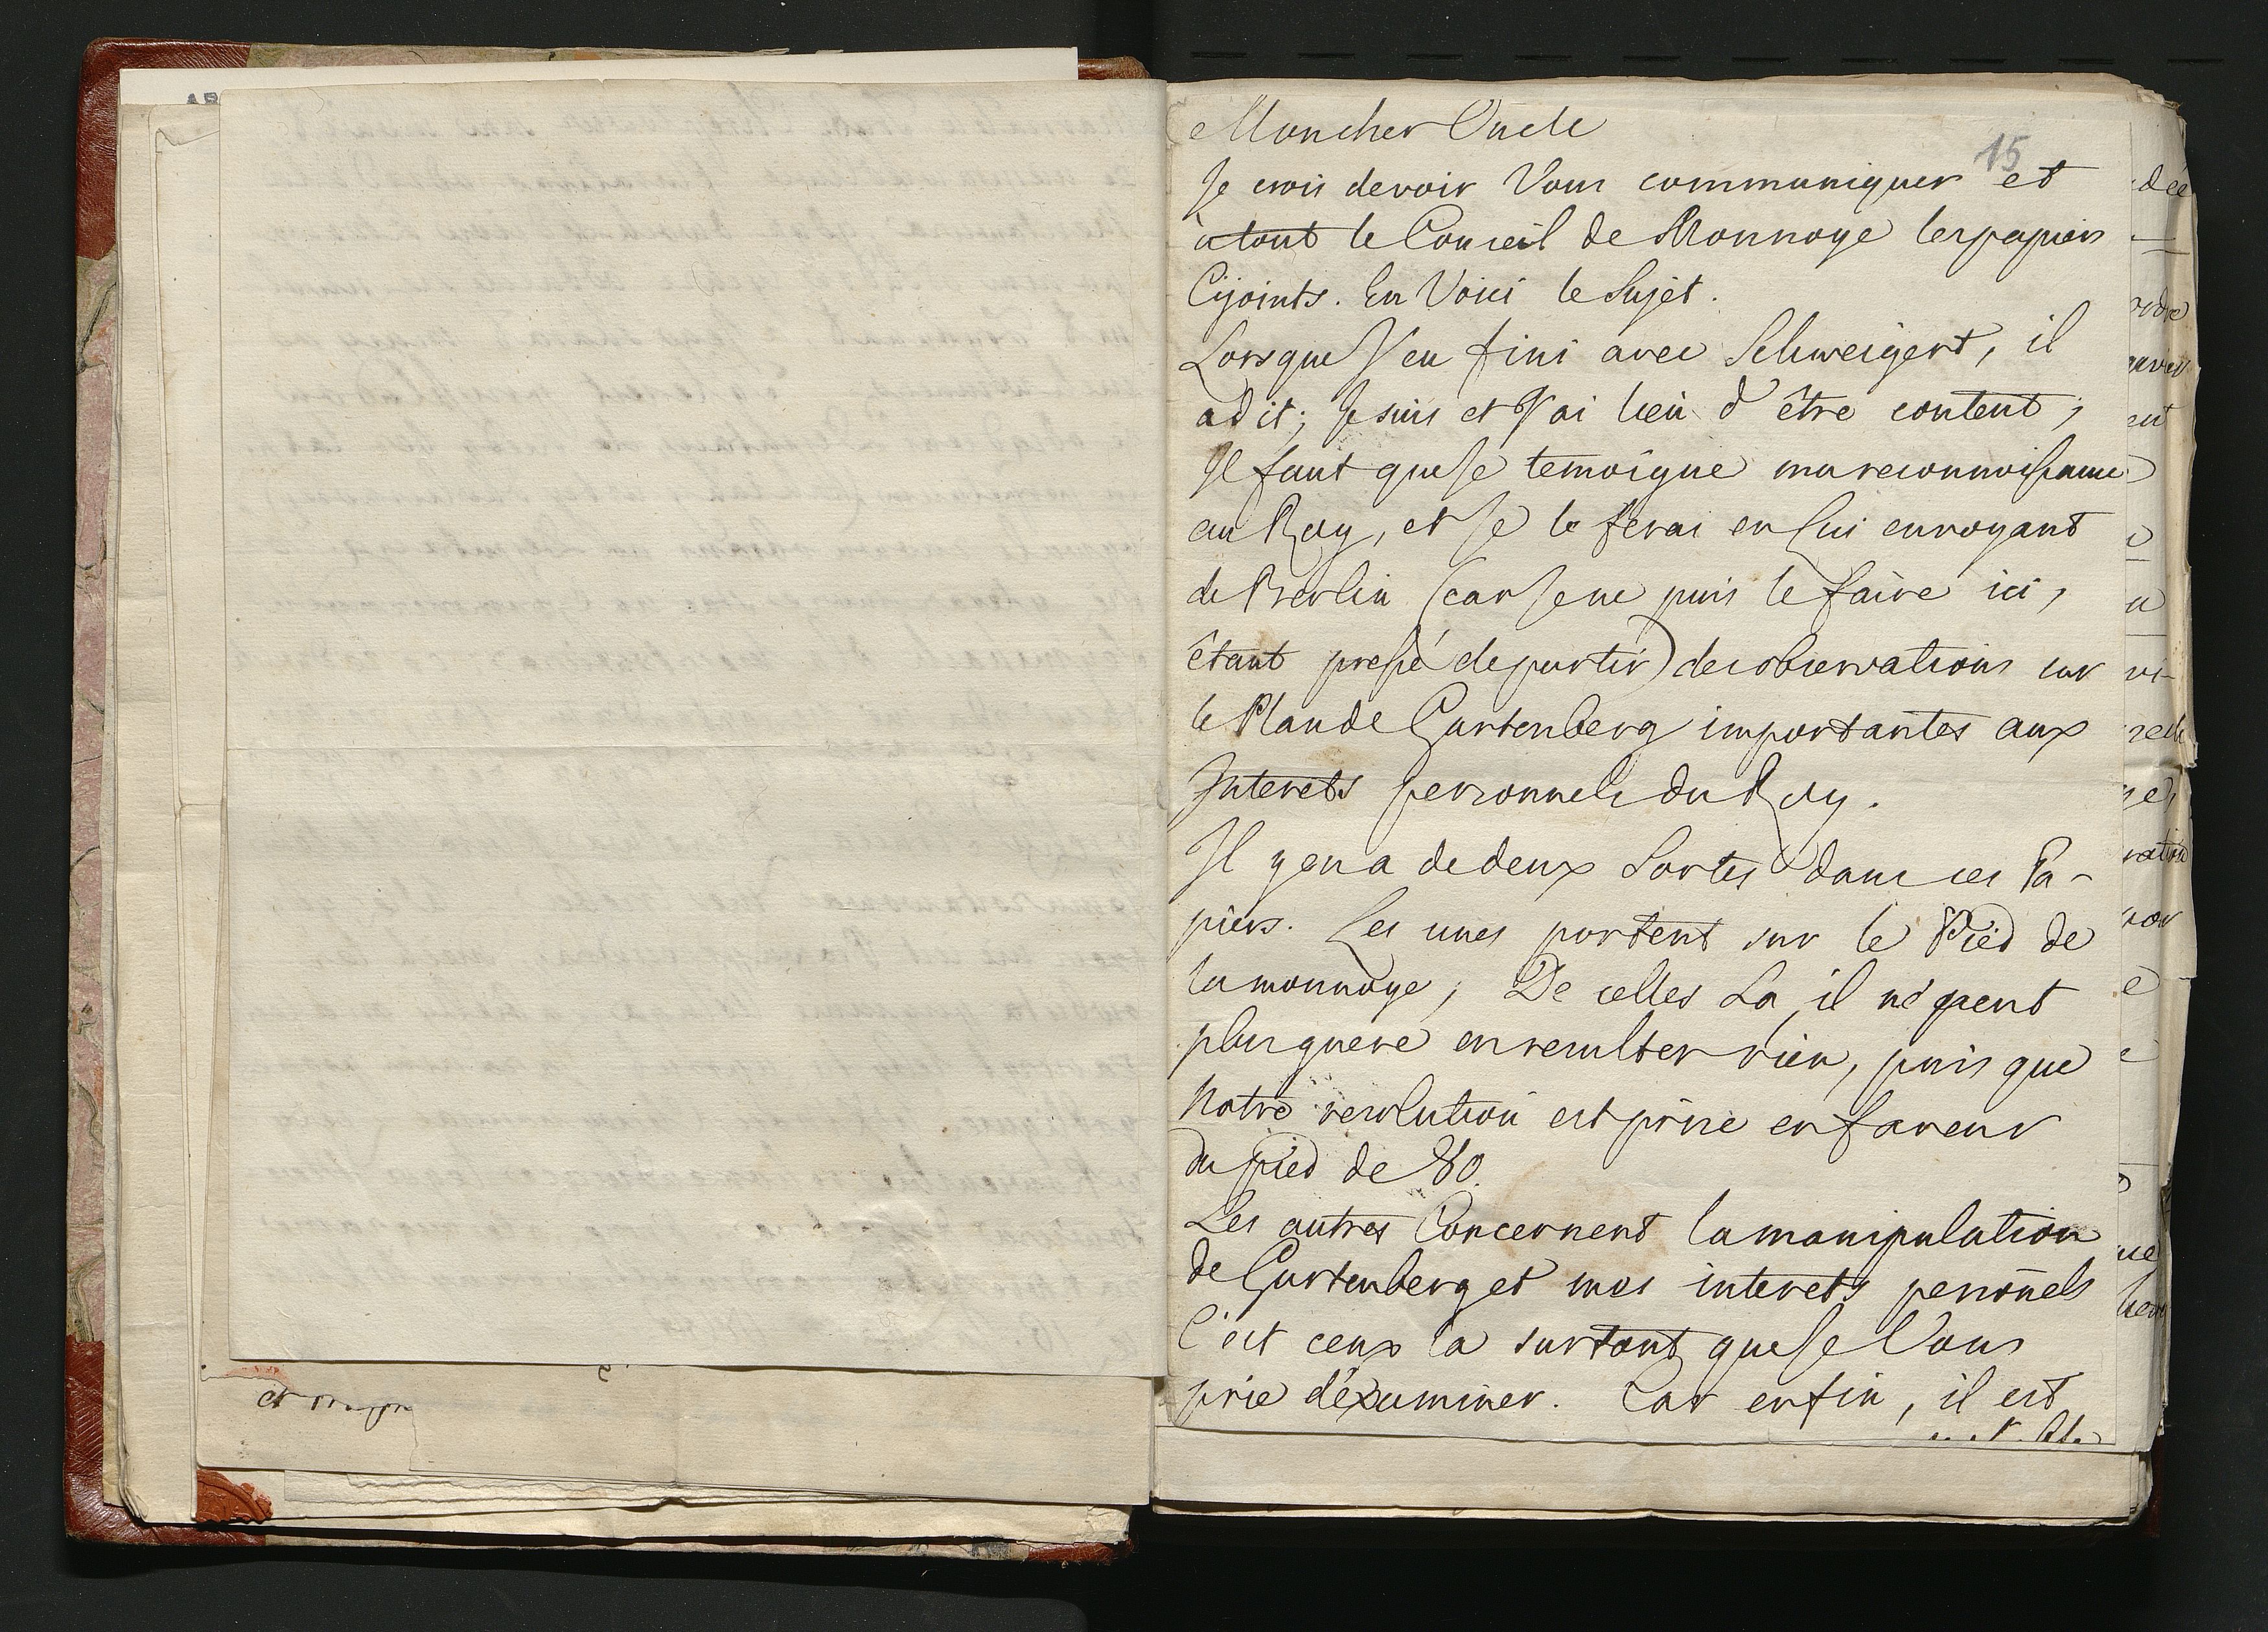 15
Mon cher Oncle
Je crois devoir Vous communiquer et
à tout le Conseil de Monnoye les papiers
Cijoints. En Voici le Sujet.
Lorsque J'eu fini avec Schweigert, il
a dit; Je suis et J'ai lieu d'être content;
Il faut que Je temoigne ma reconnoissance
au Roy, et Je le ferai en Lui envoyant
de Berlin (car Je ne puis le faire ici,
étant pressé de partir) des observations sur
le Plan de Gartenberg importantes aux
Interets personnels du Roy.
Il y en a de deux Sortes dans ces Pa-
piers. Les unes portent sur le Pied de
la monnoye; De celles La il ne peut
plus guere en resulter rien, puis que
Notre resolution est prise en faveur
du pied de 80.
Les autres Concernent la manipulation
de Gartenberg et mes interets personels
C'est ceux la surtout que Je Vous
prie d'examiner. Car enfin, il est